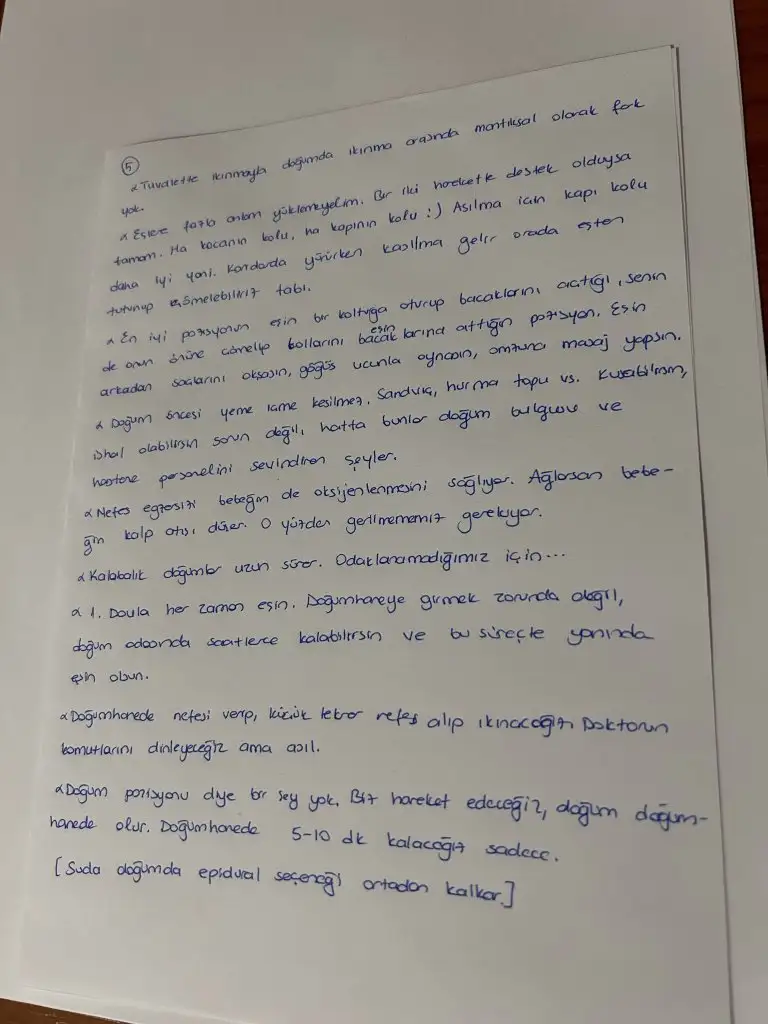 5
α Tuvalette ıkınmayla doğumda ıkınma arasında mantıksal olarak fark
yok.
α Eşlere fazla anlam yüklemeyelim. Bir iki hareketle destek olduysa
tamam. Ha kocanın kolu, ha kapının kolu :) Asılma için kapı kolu
daha iyi yani. Koridorda yürürken kasılma gelir orada eşten
tutunup çömelebiliriz tabi.
α En iyi pozisyonun eşin bir koltuğa oturup bacaklarını açtığı, senin
de onun önüne çömelip kollarını eşin bacaklarına attığın pozisyon. Eşin
arkadan saçlarını okşasın, göğüs ucunla oynasın, omzuna masaj yapsın.
α Doğum öncesi yeme içme kesilmez. Sandviç, hurma topu vs. Kusabilirsin,
ishal olabilirsin sorun değil, hatta bunlar doğum bulgusu ve
hastane personelini sevindiren şeyler.
α Nefes egzersizi bebeğin de oksijenlenmesini sağlıyor. Ağlarsan bebe-
ğin kalp atışı düşer. O yüzden gerilmememiz gerekiyor.
α Kalabalık doğumlar uzun sürer. Odaklanamadığımız için...
α 1. Doula her zaman eşin. Doğumhaneye girmek zorunda değil,
doğum odasında saatlerce kalabilirsin ve bu süreçte yanında
eşin olsun.
α Doğumhanede nefesi verip, küçük tekrar nefes alıp ıkınacağız. Doktorun
komutlarını dinleyeceğiz ama asıl.
α Doğum pozisyonu diye bir şey yok. Biz hareket edeceğiz, doğum doğum-
hanede olur. Doğumhanede 5-10 dk kalacağız sadece.
[Suda doğumda epidural seçeneği ortadan kalkar.]